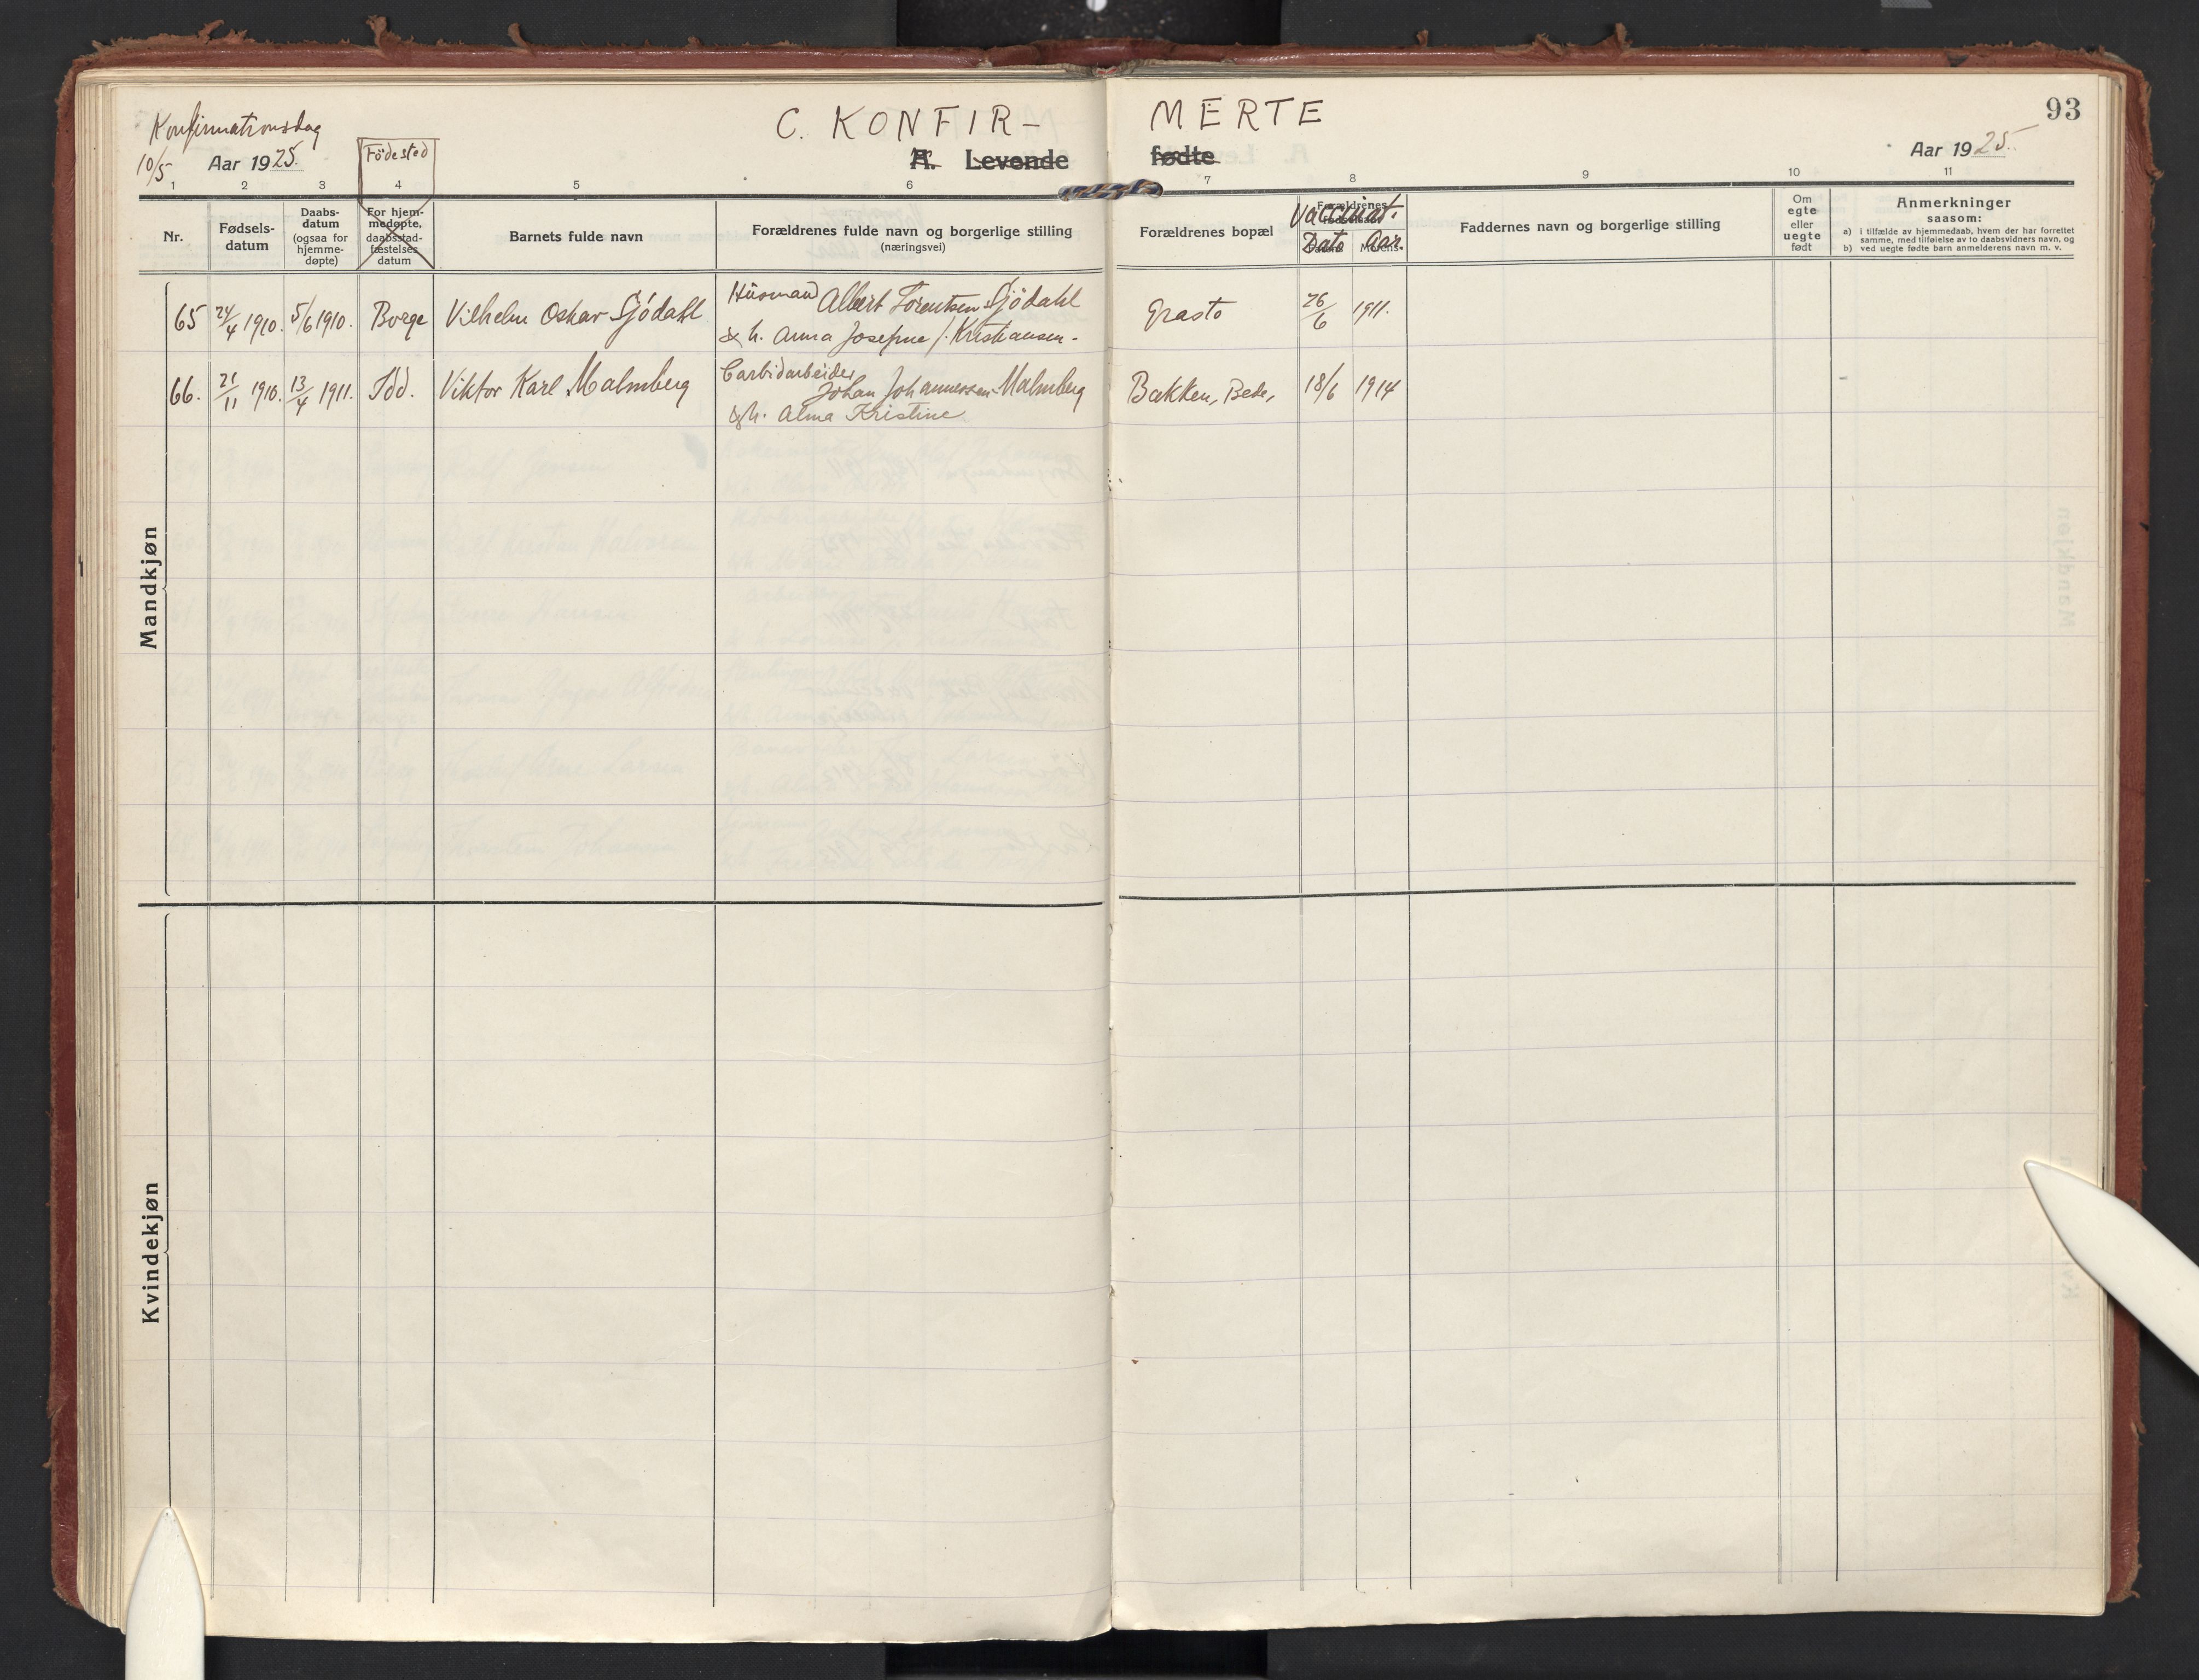 Konfirmationsdag
C. KONFIR-
MERTE
93
10/5
Aar 1925.
Födested
A. Levende
fødte
Aar 1925.
1 2 3 4 5 6 7 8 9 10 11
Nr.
Fødsels-
datum
Daabs-
datum
(ogsaa for
hjemme-
døpte)
For hjem-
medøpte,
daabsstad-
fæstelses
datum
Barnets fulde navn
Forældrenes fulde navn og borgerlige stilling
(næringsvei)
Forældrenes bopæl
Forældrenes
Vaccinat.
Dato Aar.
Faddernes navn og borgerlige stilling
Om
egte
eller
uegte
født
Anmerkninger
saasom:
a) i tilfælde av hjemmedaab, hvem der har forrettet
samme, med tilføielse av to daabsvidners navn, og
b) ved uegte fødte barn anmelderens navn m. v.
Mandkjøn
65 24/4 1910. 5/6 1910. Borge Vilhelm Oskar Sjödahl
Husmand Albert Lorentsen Sjödahl
& h. Anna Josefine f. Kristiansen.
Grasto 26/6 1911.
66. 21/11 1910. 13/4 1911. Idd. Viktor Karl Malmberg
Carbidarbeider
Johan Johannessen Malmberg
& h. Alma Kristine
Bakken, Bede, 18/6 1914
Kvindekjøn